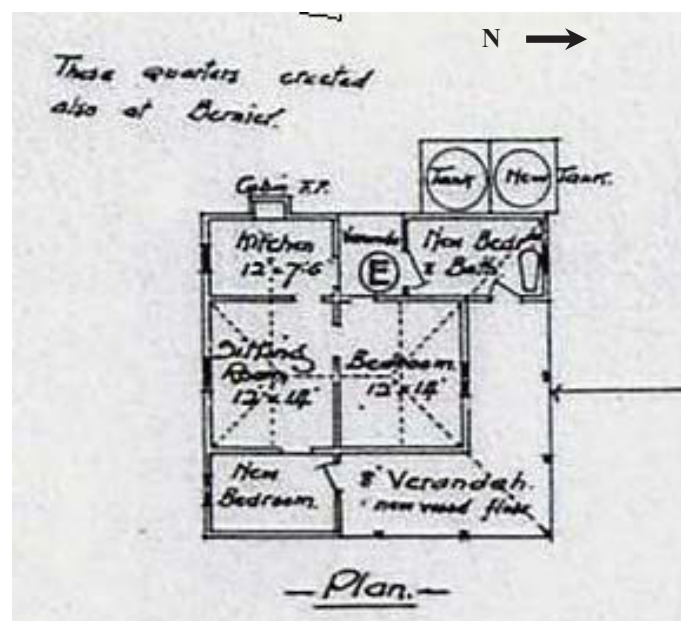 N
These quarters erected
also at Bernier.
Tank
New Tank.
Cabin F.P.
Kitchen
12' × 7'-6
Verandah
E
New Bedrm
& Bath
Sitting
Room
12' × 14'
Bedroom
12' × 14'
New
Bedroom.
8' Verandah.
new wood floor
— Plan. —